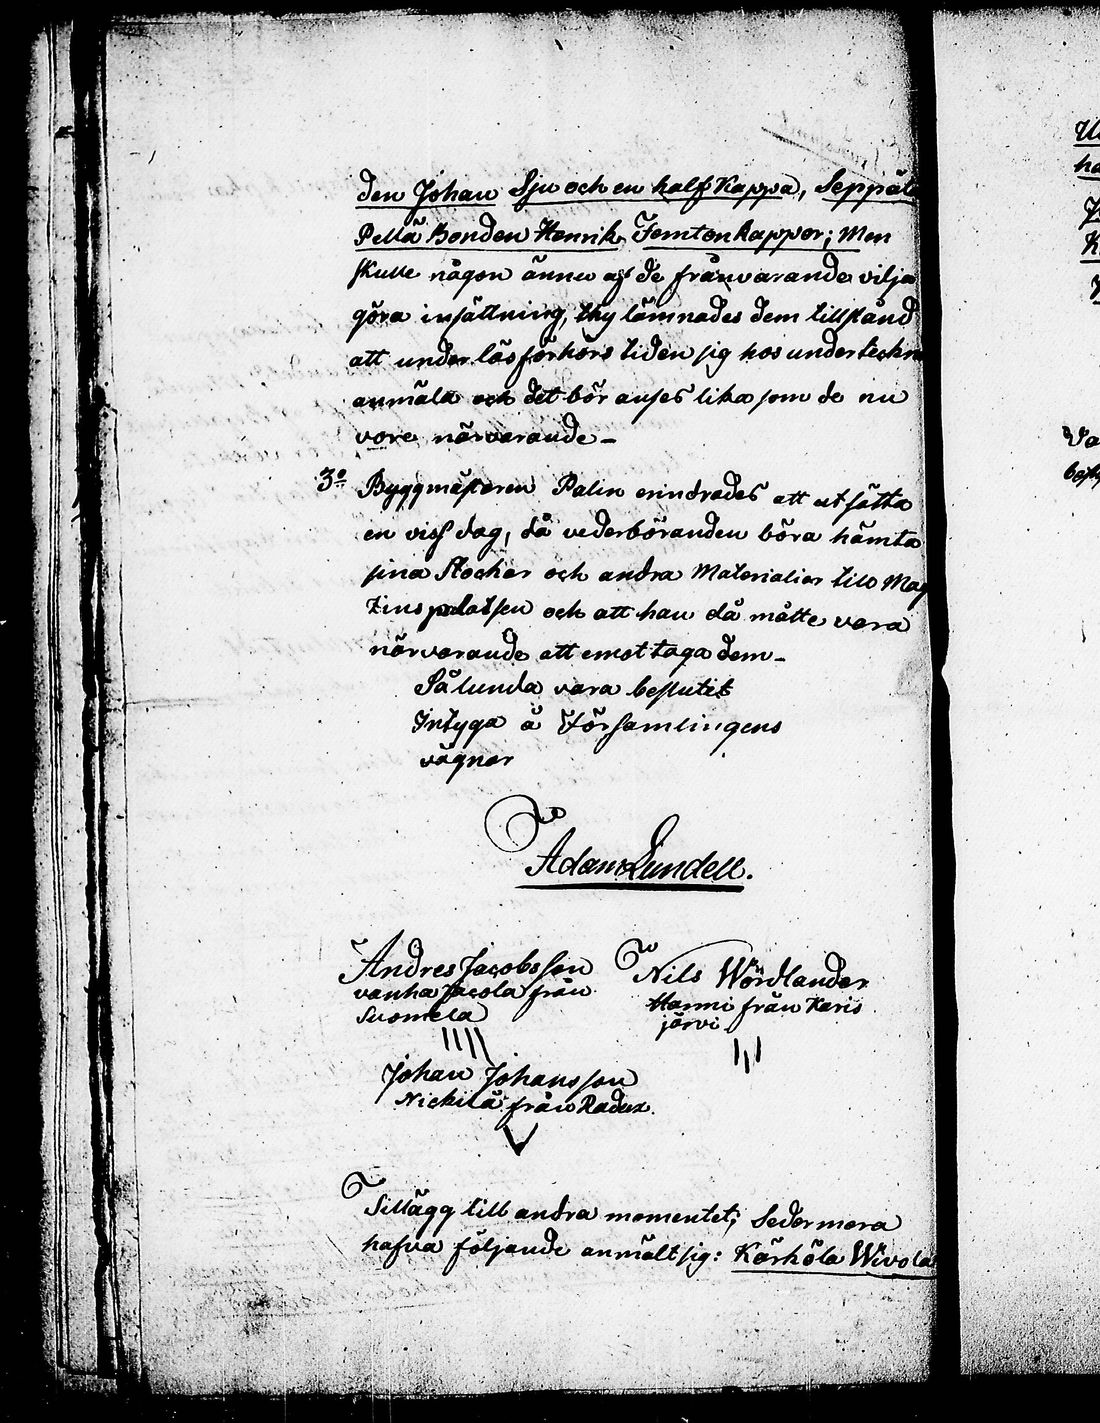 den Johan Sju och en half Kappa, Seppäl
Pellä Bonden Henrik Femton kappor; Men
skulle någon ännu af de frånvarande vilja
göra insättning, thy lämnades dem tillstånd
att under läsförhörs tiden sig hos underteckn
anmäla och det bör anses lika som de nu
vore närvarande –
3º Byggmästaren Palin erindrades att utsätta
en viss dag, då vederböranden böra hämta
sina Stockar och andra Materialier till Mag
zins platsen och att han då måtte vara
närvarande att emottaga dem –
Sålunda vara beslutit
Intyga å Församlingens
vägnar
Adam Lundell.
Andres Jacobsson
vanha Jacola från
Suomela
Nils
Hanni från Karis
järvi
Johan Johansson
Nickilä från
Tillägg till andra momentet; Sedermera
hafva följande anmält sig: Kärkölä Wivola